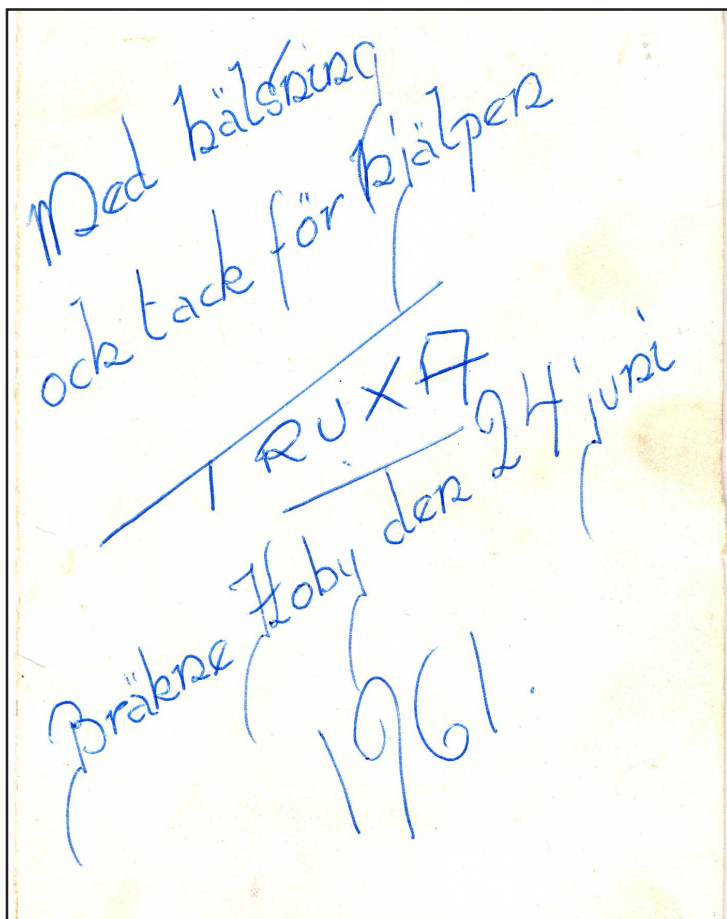 Med hälsning
och tack för hjälpen
TRUXA
Bräkne Hoby den 24 juni
1961.